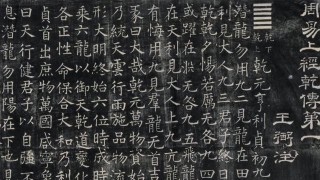 周易上經乾傳第一
王弼注
䷀乾下乾上乾元亨利貞初九
潛龍勿用九二見龍在田
利見大人九三君子終日
乾乾夕惕若厲无咎九四
或躍在淵无咎九五飛龍
在天利見大人上九亢龍
有悔用九見羣龍无首吉
彖曰大哉乾元萬物資始
乃統天雲行雨施品物流
形大明終始六位時成時
乘六龍以御天乾道變化
各正性命保合大和乃利
貞首出庶物萬國咸寧象
曰天行健君子以自強不
息潛龍勿用陽在下也見